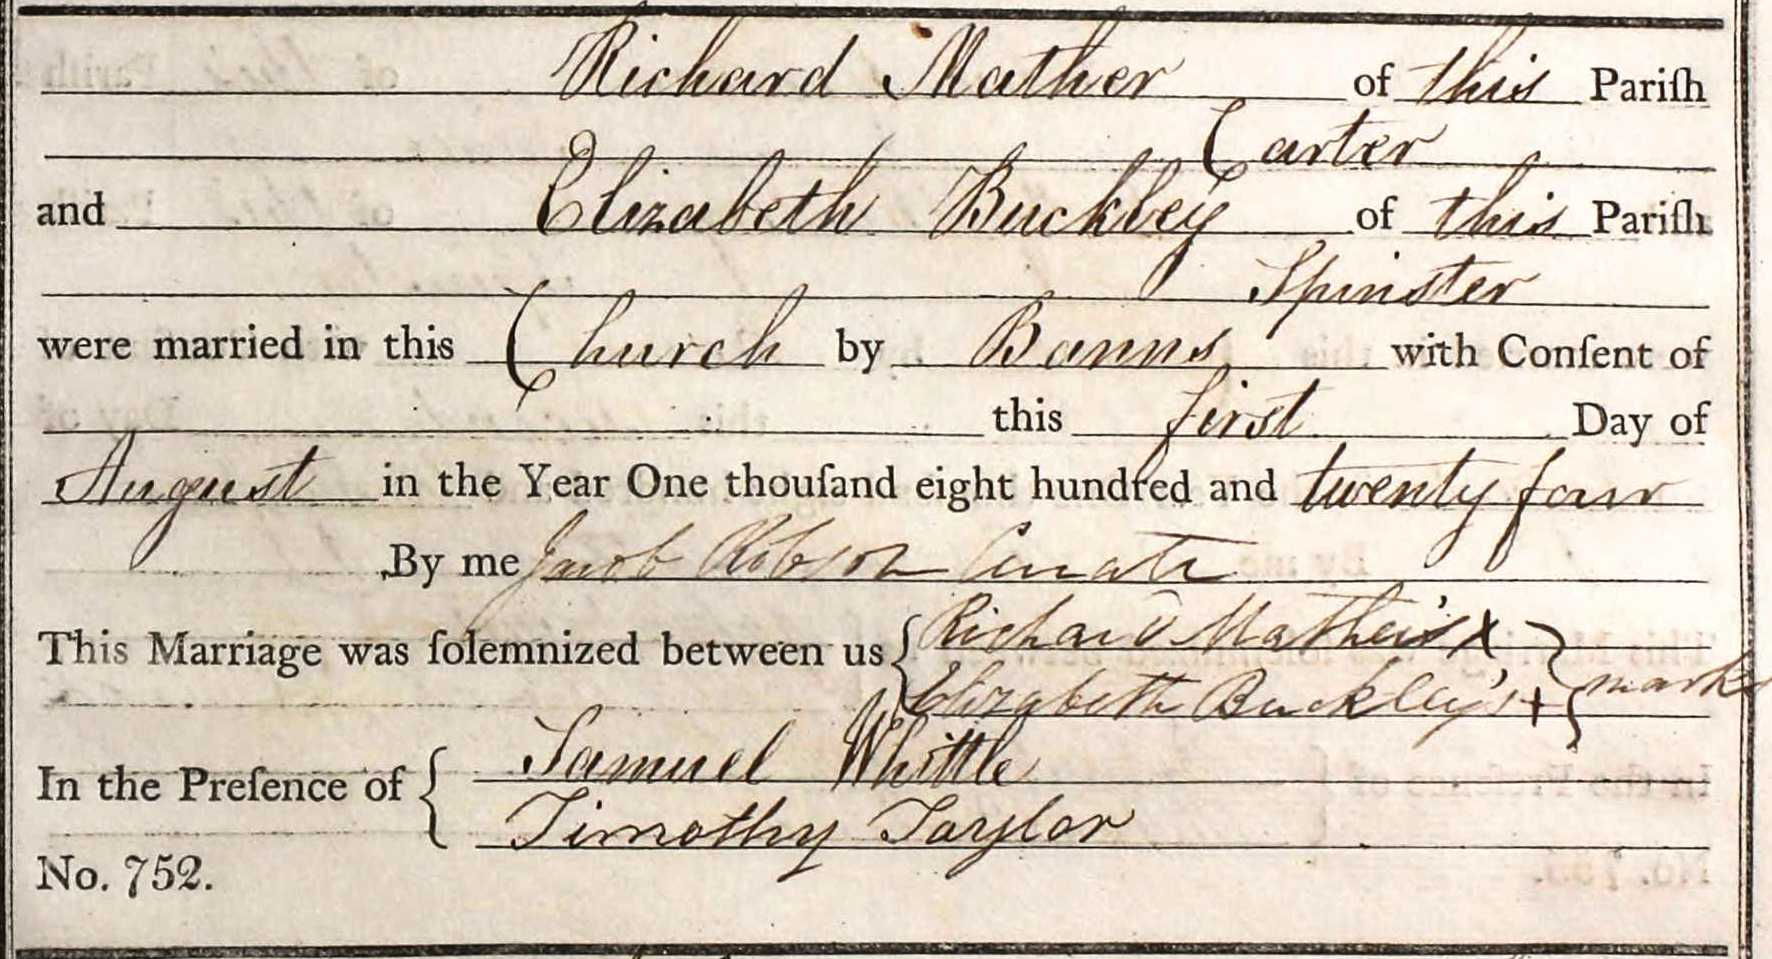 Richard Mather of this Pariſh
Carter
and Elizabeth Buckley of this Pariſh
Spinster
were married in this Church by Banns with Conſent of
this first Day of
August in the Year One thouſand eight hundred and twenty four
By me Jacob Robson Curate
This Marriage was ſolemnized between us { Richard Mather's X }
Elizabeth Buckley's + } marks
In the Preſence of { Samuel Whittle
Timothy Taylor
No. 752.